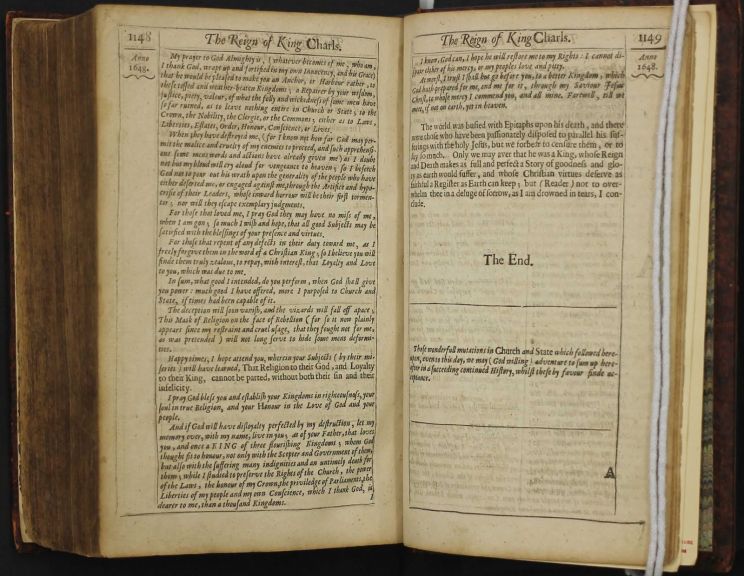 1148
The Reign of King Charls.
Anno
1648.
My prayer to God Almighty is, (whatever becomes of me, who am,
I thank God, wrapt up and fortified in my own Innocency, and his Grace)
that he would be pleased to make you an Anchor, or Harbour rather, to
these tossed and weather-beaten Kingdoms; a Repairer by your wisdom,
justice, piety, valour, of what the folly and wickedness of some men have
so far ruined, as to leave nothing entire in Church or State; to the
Crown, the Nobility, the Clergie, or the Commons; either as to Laws,
Liberties, Estates, Order, Honour, Conscience, or Lives.
When they have destroyed me, (for I know not how far God may per-
mit the malice and cruelty of my enemies to proceed, and such apprehensi-
ons some mens words and actions have already given me) as I doubt
not but my bloud will cry aloud for vengeance to heaven; so I beseech
God not to pour out his wrath upon the generality of the people who have
either deserted me, or engaged against me, through the Artifice and hypo-
crisie of their Leaders, whose inward horrour will be their first tormen-
tor; nor will they escape exemplary judgments.
For those that loved me, I pray God they may have no miss of me,
when I am gon; so much I wish and hope, that all good Subjects may be
satisfied with the blessings of your presence and virtues.
For those that repent of any defects in their duty toward me, as I
freely forgive them in the word of a Christian King; so I believe you will
finde them truly zealous, to repay, with interest, that Loyalty and Love
to you, which was due to me.
In sum, what good I intended, do you perform, when God shall give
you power: much good I have offered, more I purposed to Church and
State, if times had been capable of it.
The deception will soon vanish, and the vizards will fall off apace;
This Mask of Religion on the face of Rebellion (for so it now plainly
appears since my restraint and cruel usage, that they fought not for me,
as was pretended) will not long serve to hide some mens deformi-
ties.
Happy times, I hope attend you, wherein your Subjects (by their mi-
series) will have learned, That Religion to their God, and Loyalty
to their King, cannot be parted, without both their sin and their
infelicity.
I pray God bless you and establish your Kingdoms in righteousness, your
soul in true Religion, and your Honour in the Love of God and your
people.
And if God will have disloyalty perfected by my destruction, let my
memory ever, with my name, live in you; as of your Father, that loves
you, and once a KING of three flourishing Kingdoms; whom God
thought fit to honour, not only with the Scepter and Government of them,
but also with the suffering many indignities and an untimely death for
them; while I studied to preserve the Rights of the Church, the power
of the Laws, the honour of my Crown, the priviledge of Parliaments, the
Liberties of my people and my own Conscience, which I thank God, is
dearer to me, than a thousand Kingdoms.
I
The Reign of King Charls.
1149
Anno
1648.
I know, God can, I hope he will restore me to my Rights: I cannot di-
spair either of his mercy, or my peoples love and pitty.
At most, I trust I shall but go before you, to a better Kingdom, which
God hath prepared for me, and me for it, through my Saviour Jesus
Christ, to whose mercy I commend you, and all mine. Farewell, till we
meet, if not on earth, yet in heaven.
The world was busied with Epitaphs upon his death, and there
were those who have been passionately disposed to parallel his suf-
ferings with the holy Jesus, but we forbear to censure them, or to
say so much. Only we may aver that he was a King, whose Reign
and Death makes as full and perfect a Story of goodness and glo-
ry as earth would suffer, and whose Christian virtues deserve as
faithful a Register as Earth can keep; but (Reader) not to over-
whelm thee in a deluge of sorrow, as I am drowned in tears, I con-
clude.
The End.
Those wonderfull mutations in Church and State which followed here-
upon, even to this day, we may (God willing) adventure to sum up here-
after in a succeeding continued History, whilst these by favour finde ac-
ceptance.
A